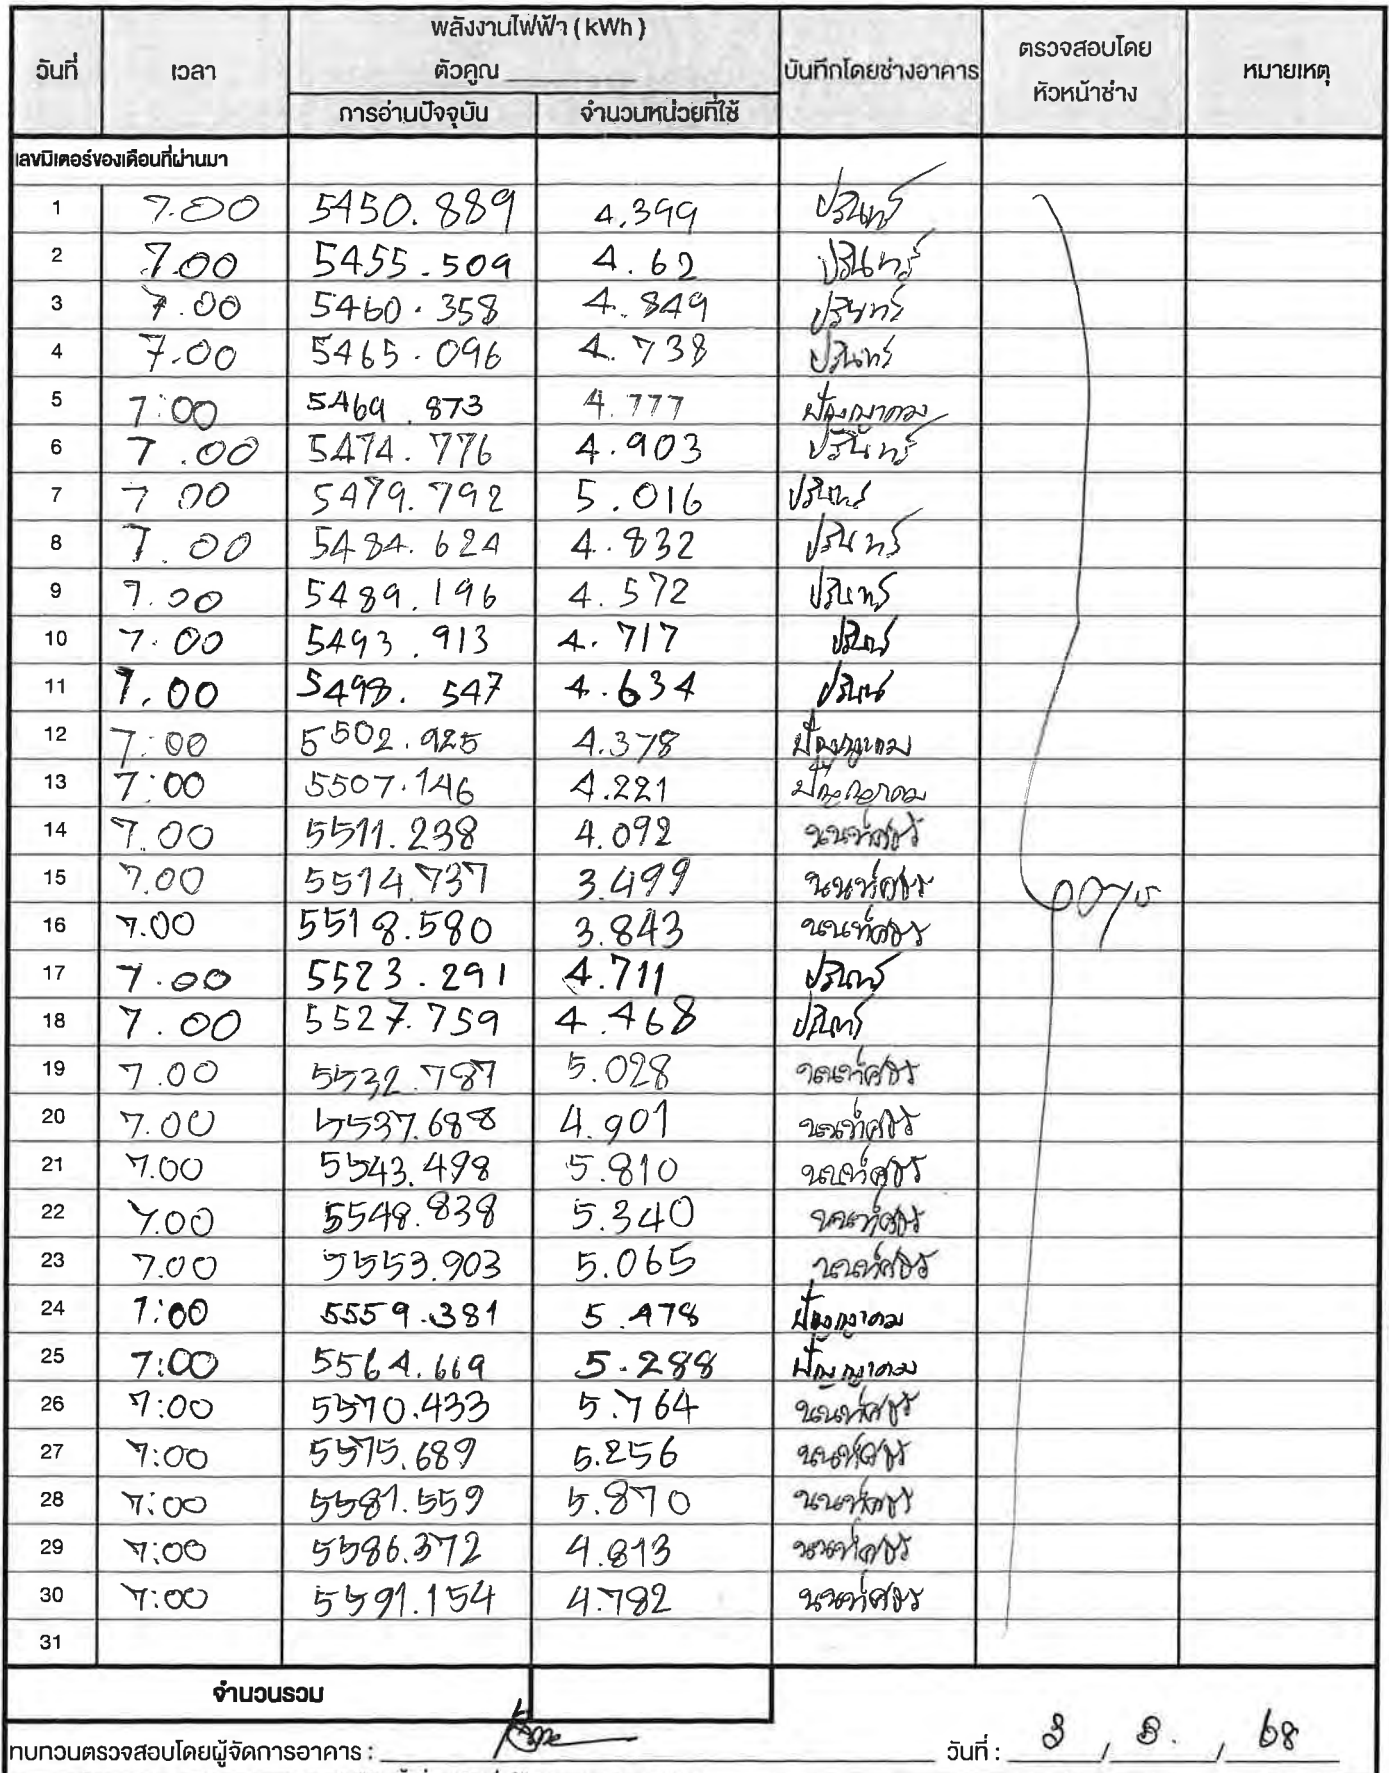 พลังงานไฟฟ้า ( kWh )
วันที่ เวลา ตัวคูณ บันทึกโดยช่างอาคาร ตรวจสอบโดย หัวหน้าช่าง หมายเหตุ
การอ่านปัจจุบัน จำนวนหน่วยที่ใช้
เลขมิเตอร์ของเดือนที่ผ่านมา
1 7.00 5450.889 4.399 ปรินทร์
2 7.00 5455.509 4.62 ปรินทร์
3 7.00 5460.358 4.849 ปรินทร์
4 7.00 5465.096 4.738 ปรินทร์
5 7:00 5469.873 4.777 ปัญญาคม
6 7.00 5474.776 4.903 ปรินทร์
7 7 00 5479.792 5.016 ปรินทร์
8 7.00 5484.624 4.832 ปรินทร์
9 7.00 5489.196 4.572 ปรินทร์
10 7.00 5493.913 4.717 ปรินทร์
11 7.00 5498.547 4.634 ปรินทร์
12 7:00 5502.925 4.378 ปัญญาคม
13 7:00 5507.146 4.221 ปัญญาคม
14 7.00 5511.238 4.092 นนท์ศธร
15 7.00 5514.737 3.499 นนท์ศธร
16 7.00 5518.580 3.843 นนท์ศธร
17 7.00 5523.291 4.711 ปรินทร์
18 7.00 5527.759 4.468 ปรินทร์
19 7.00 5532.787 5.028 นนท์ศธร
20 7.00 5537.688 4.901 นนท์ศธร
21 7.00 5543.498 5.810 นนท์ศธร
22 7.00 5548.838 5.340 นนท์ศธร
23 7.00 5553.903 5.065 นนท์ศธร
24 7:00 5559.381 5.478 ปัญญาคม
25 7:00 5564.669 5.288 ปัญญาคม
26 7:00 5570.433 5.764 นนท์ศธร
27 7:00 5575.689 5.256 นนท์ศธร
28 7:00 5581.559 5.870 นนท์ศธร
29 7:00 5586.372 4.813 นนท์ศธร
30 7:00 5591.154 4.782 นนท์ศธร
31
จำนวนรวม
ทบทวนตรวจสอบโดยผู้จัดการอาคาร : วันที่ : 3 / 5. / 68